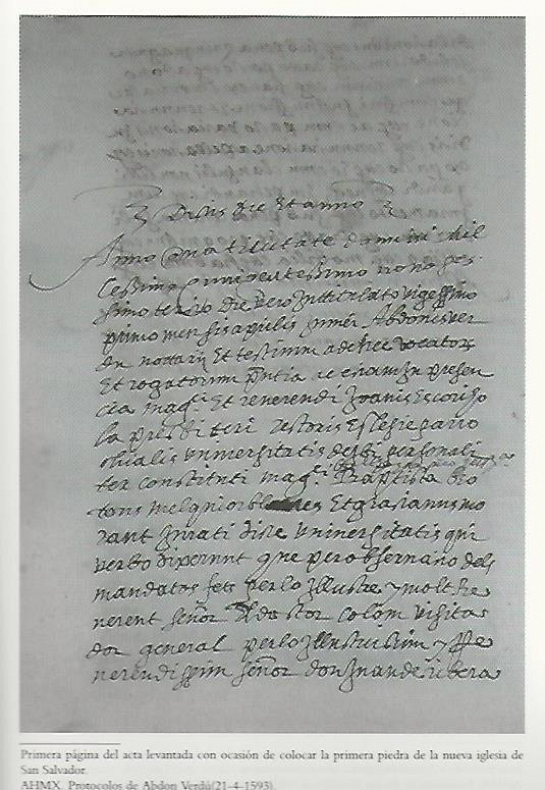 Dictis die et anno
Anno a natiuitate Domini mil
lessimo quingentessimo nonages
simo tercio die vero intitulato vigessimo
primo mensis aprilis in mei Abdonis ver
du nottarii et testium ad hec vocatorum
et rogatorum presentia ac etiam in presen
cia magci et reuerendi Joanis Escorijo
la presbiteri rectoris Esglesie parro
chialis vniuersitatis personali
ter constituti magci Baptista
tons melchior et gracianus mo
rant Jurati dicte vniuersitatis qui
verbo dixerunt que per obseruacio dels
mandatos fets per lo Illustre y molt Re
uerent señor doctor Colom visita
dor general per lo Illustrissim y Re
uerendissim señor don Juan de ribera
Primera página del acta levantada con ocasión de colocar la primera piedra de la nueva iglesia de
San Salvador.
AHMX. Protocolos de Abdon Verdú(21-4-1593).